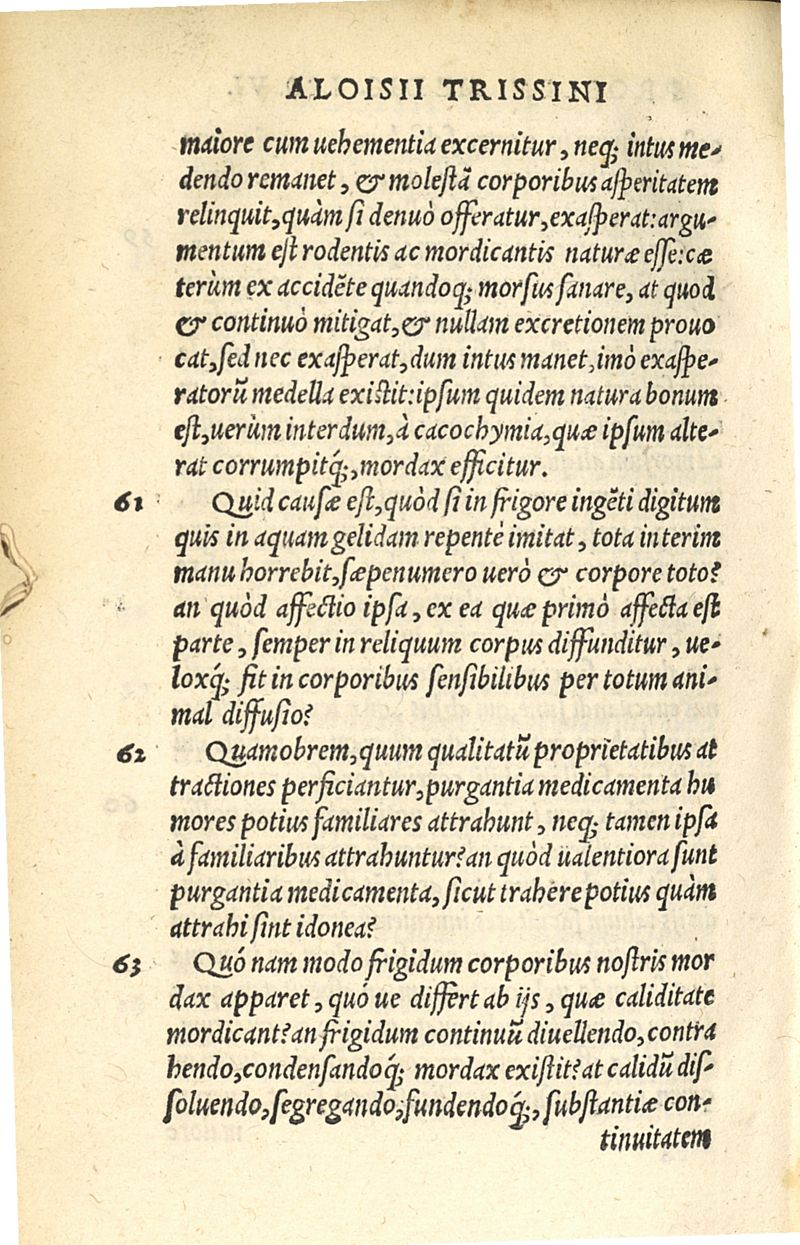 ALOISII TRISSINI
maiore cum uehementia excernitur, neq; intus me-
dendo remanet, & molestã corporibus asperitatem
relinquit, quàm si denuò offeratur, exasperat: argu-
mentum est rodentis ac mordicantis naturæ esse: cæ
terùm ex accidẽte quandoq; morsus sanare, at quod
& continuò mitigat, & nullam excretionem prouo
cat, sed nec exasperat, dum intus manet, imò exaspe-
ratorũ medella existit: ipsum quidem natura bonum
est, uerùm interdum, à cacochymia, quæ ipsum alte-
rat corrumpitq́;, mordax efficitur.
61 Quid causæ est, quòd si in frigore ingẽti digitum
quis in aquam gelidam repentè imitat, tota interim
manu horrebit, sæpenumero uerò & corpore toto?
an quòd affectio ipsa, ex ea quæ primò affecta est
parte, semper in reliquum corpus diffunditur, ue-
loxq́; fit in corporibus sensibilibus per totum ani-
mal diffusio?
62 Quamobrem, quum qualitatũ proprietatibus at
tractiones perficiantur, purgantia medicamenta hu
mores potius familiares attrahunt, neq; tamen ipsa
à familiaribus attrahuntur? an quòd ualentiora sunt
purgantia medicamenta, sicut trahere potius quàm
attrahi sint idonea?
63 Quó nam modo frigidum corporibus nostris mor
dax apparet, quó ue differt ab ijs, quæ caliditate
mordicant? an frigidum continuũ diuellendo, contra
hendo, condensandoq́; mordax existit? at calidũ dis-
soluendo, segregando, fundendoq́;, substantiæ con-
tinuitatem